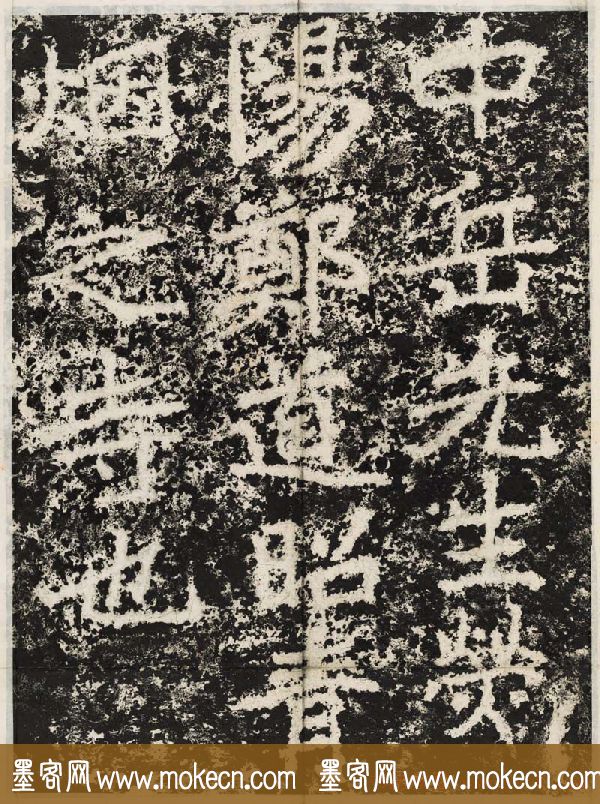 中岳先生熒
陽鄭道昭青
烟之寺也
墨客网 www.mokecn.com 墨客网 www.mokecn.com